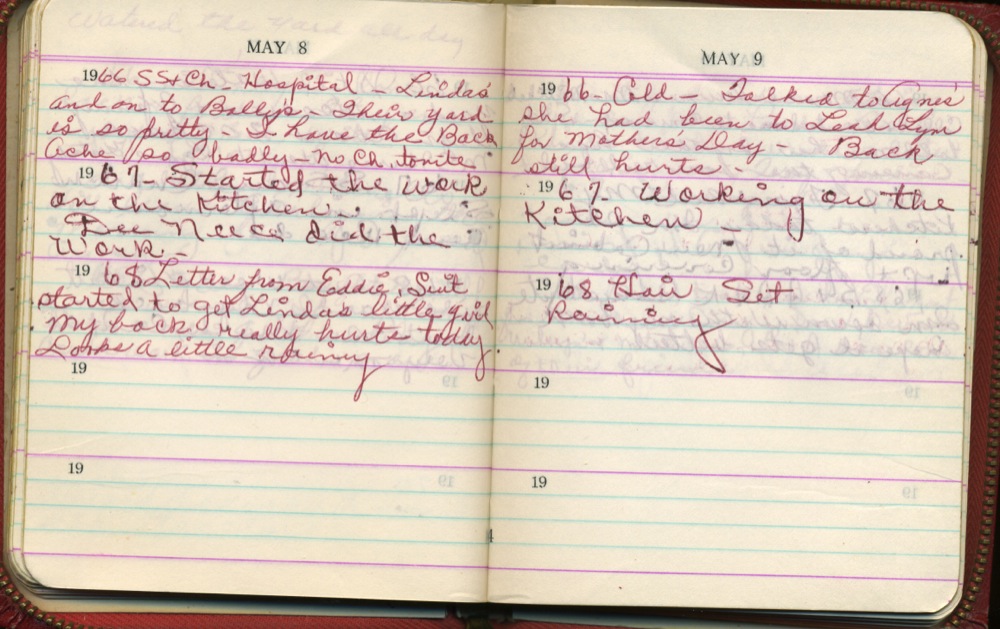 Watered the yard all day
MAY 8
1966 SS + Ch - Hospital - Lindas
and on to Bobbys - Their yard
is so pritty - I have the Back
ache so badly - no Ch. tonite
1967 - Started the work
on the Kitchen.
Dee Neece did the
Work -
1968 Letter from Eddie. Suit
started to get Lindas little girl
My back really hurts today
Looks a little rainny
19
19
MAY 9
1966 - Cold - Talked to Agnes
she had been to Lead Lyn
for Mothers' Day - Back
still hurts -
1967. Working on the
Kitchen -
1968 Hair Set
Raining
19
19